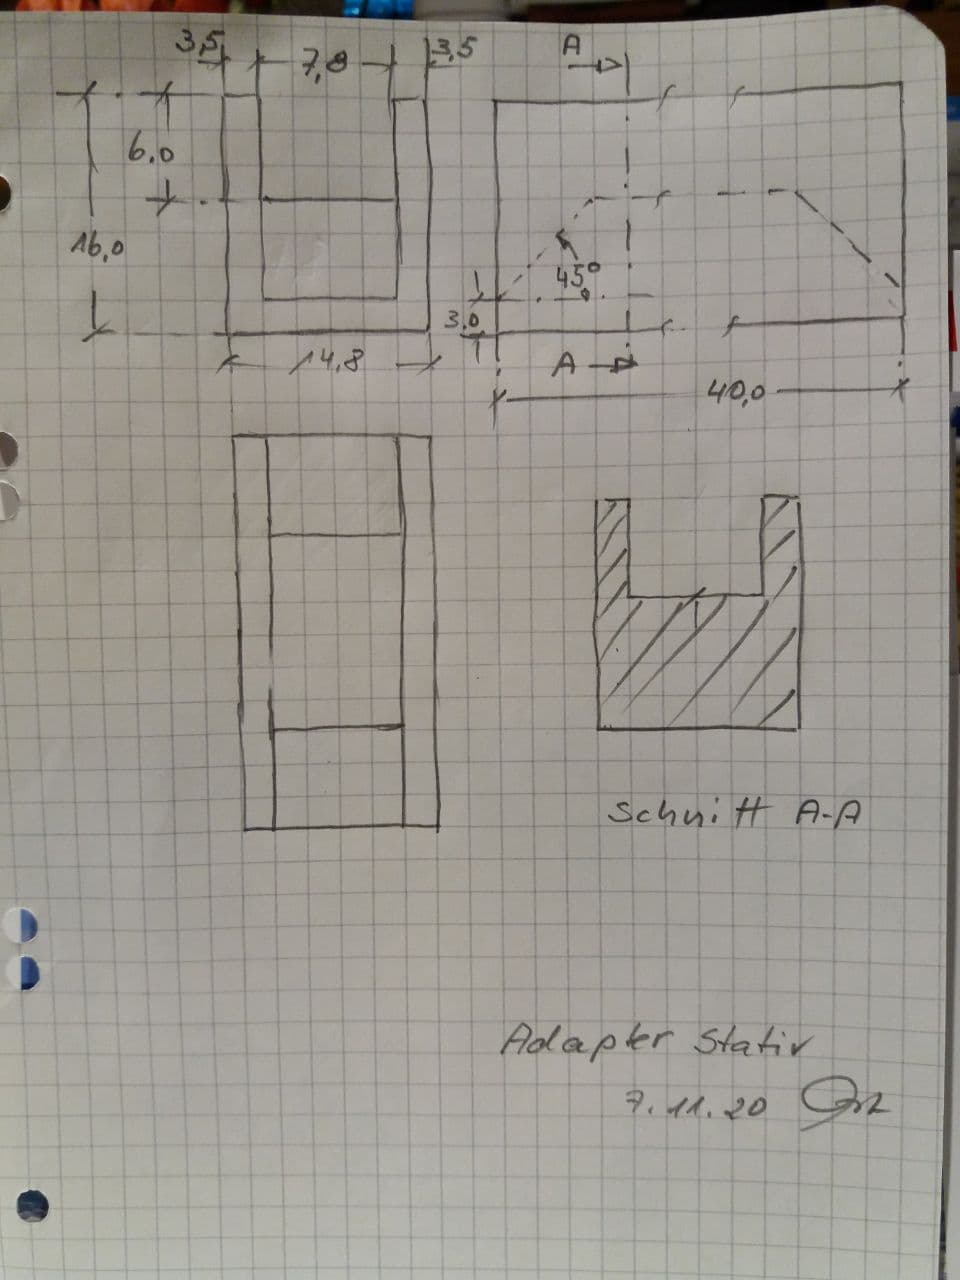 3,5
7,8
3,5
A
6,0
16,0
45°
3,0
14,8
A
40,0
Schnitt A-A
Adapter Stativ
7.11.20